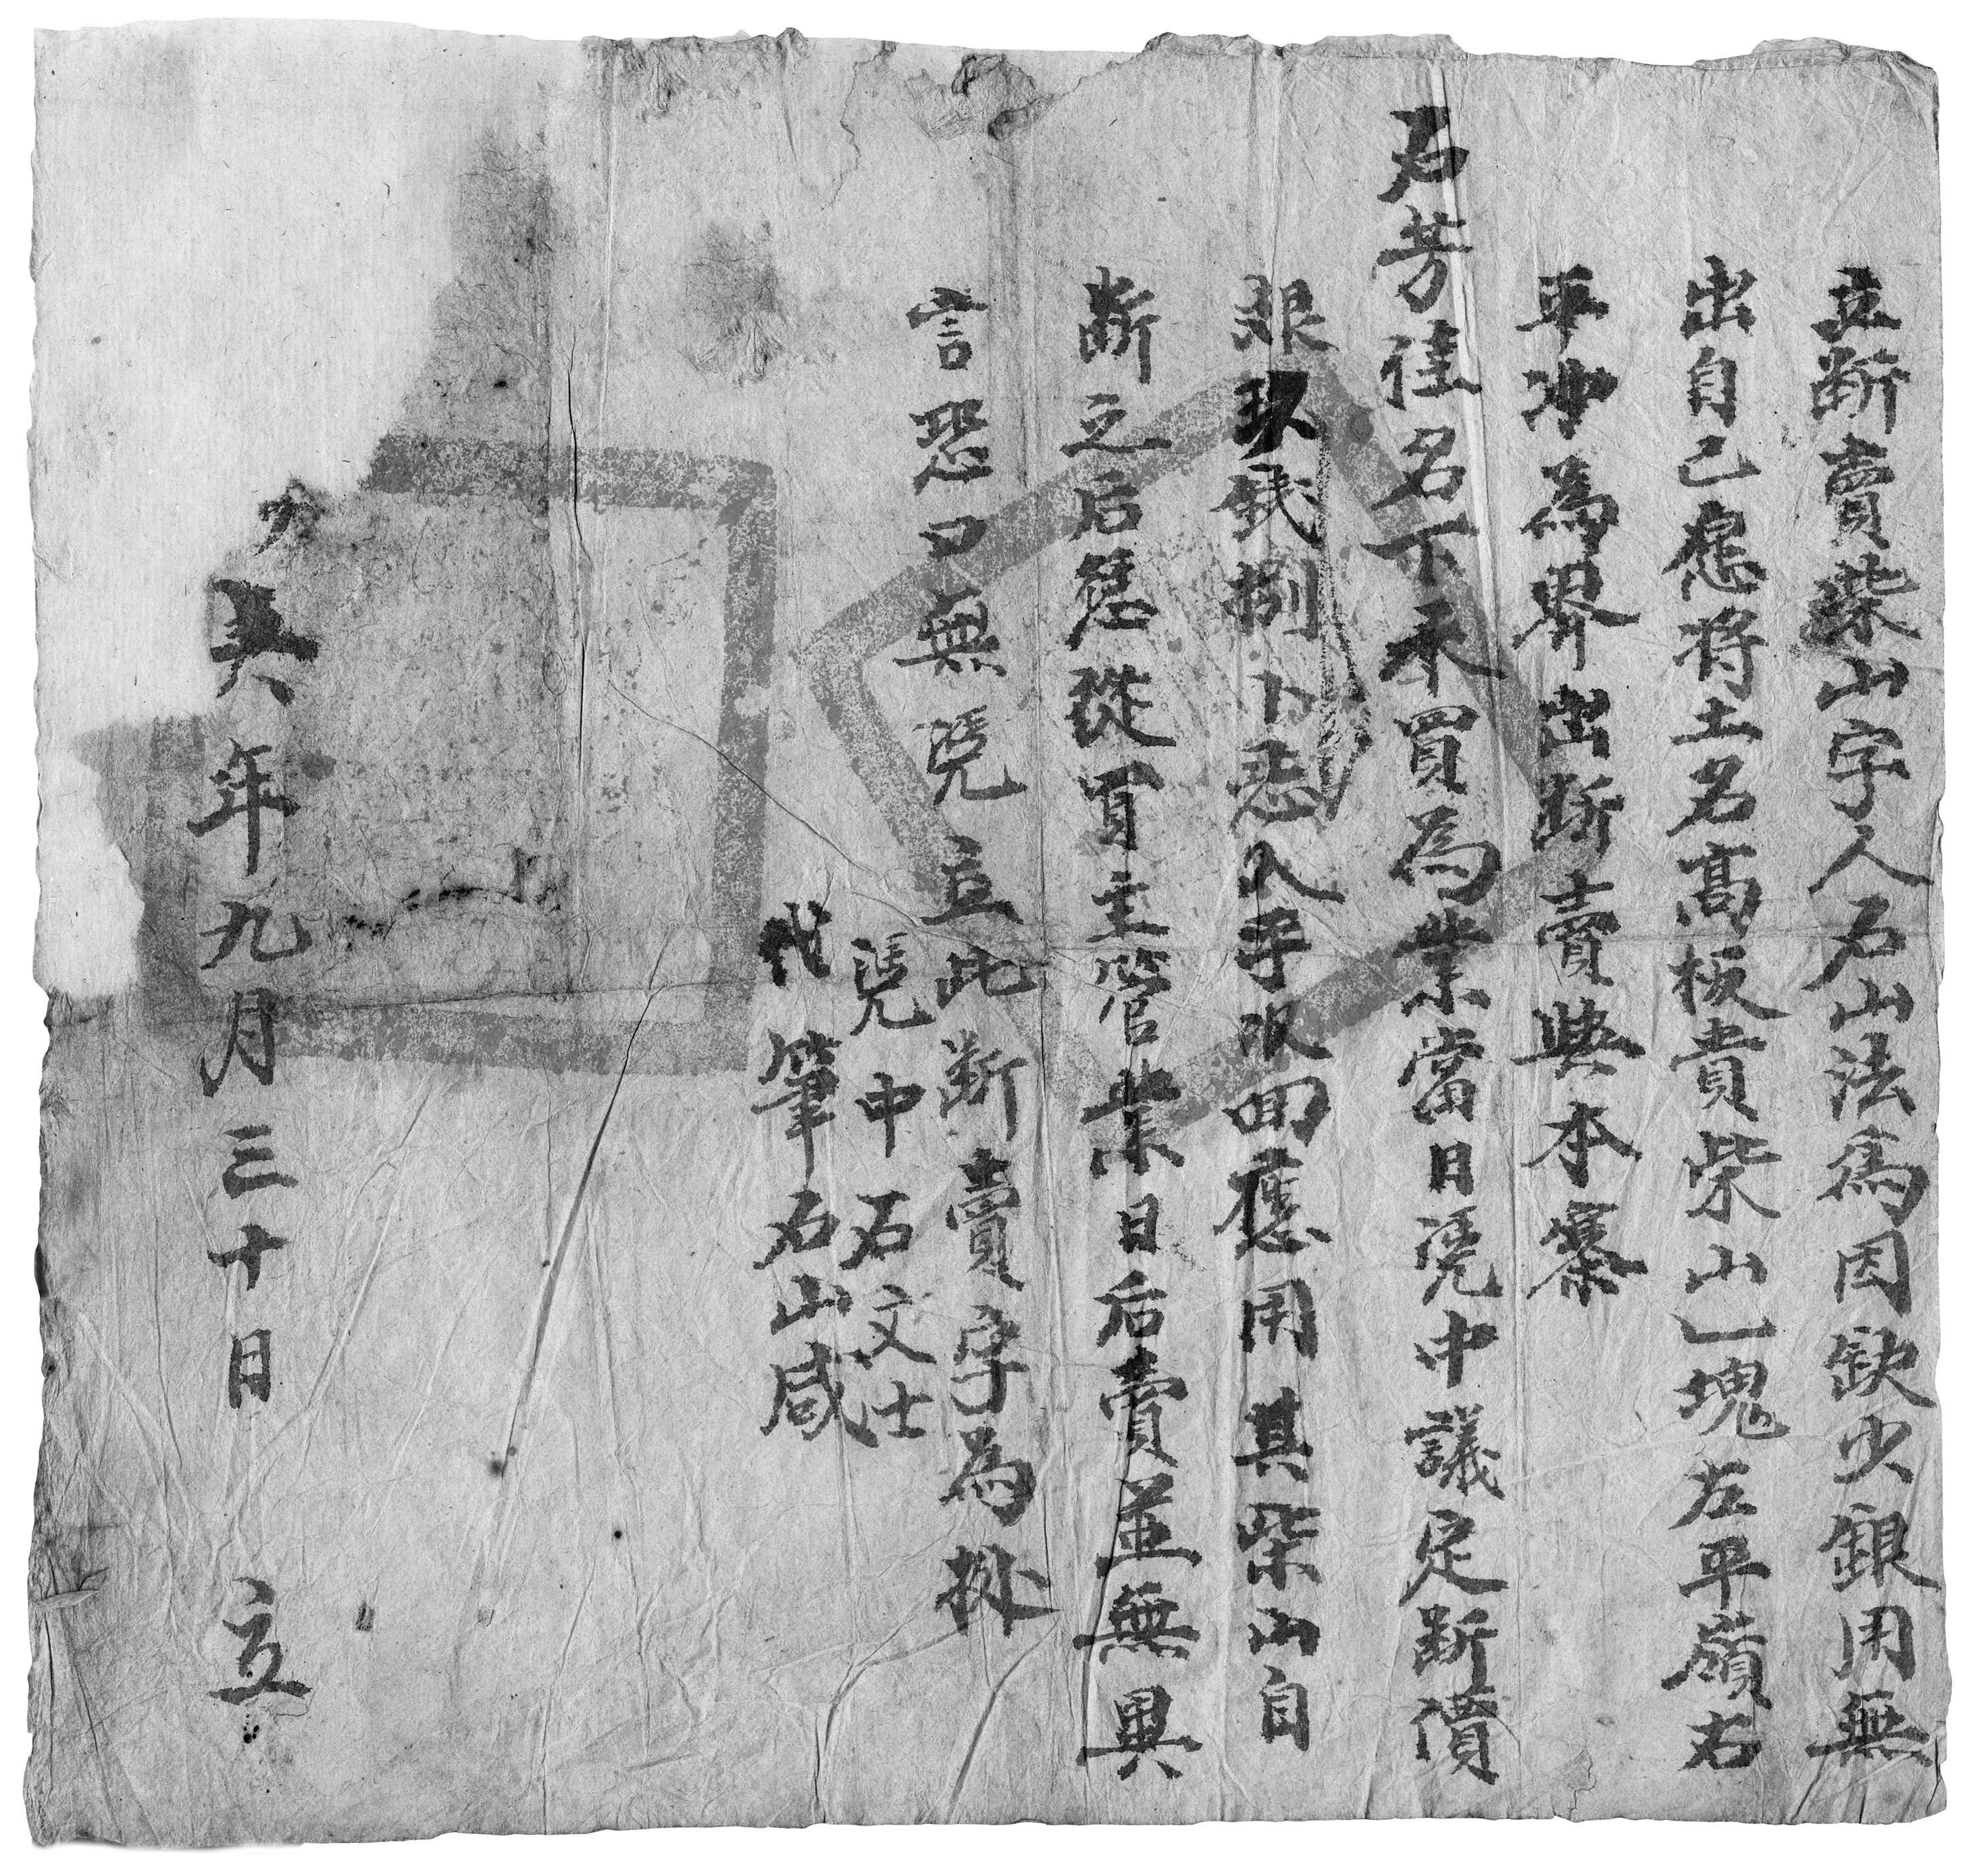 立斷賣柴山字人石山法爲因缺少銀用無
出自己愿將土名高板貴柴山一塊左平嶺右
平冲為界出斷賣與本寨
石芳佳名下承買為業當日凴中議定斷價
銀玖錢捌卜悉入手收回應用其柴山自
斷之后恁從買主管業日后賣並無異
言恐口無凴立此斷賣字為㨿
凴中石文士
代筆石山咸
年九月三十日 立